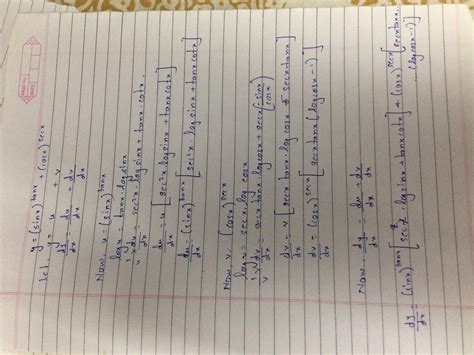 y = (sinx)^tanx + (cosx)^secx
Let, y = u + v
dy/dx = du/dx + dv/dx
Now, u = (sinx)^tanx
log u = tanx · log sinx
1/u du/dx = sec²x · log sinx + tanx · cotx
du/dx = u [sec²x log sinx + tanx cotx]
du/dx = (sinx)^tanx [sec²x log sinx + tanx cotx]
Now v = (cosx)^secx
log v = secx · log cosx
1/v dv/dx = secx tanx · log cosx + secx (-sinx/cosx)
dv/dx = v [secx tanx · log cosx - secx · tanx]
dv/dx = (cosx)^secx [secx tanx (log cosx - 1)]
Now dy/dx = du/dx + dv/dx
dy/dx = (sinx)^tanx [sec²x · log sinx + tanx cotx] + (cosx)^secx [secx tanx
(log cosx - 1)]